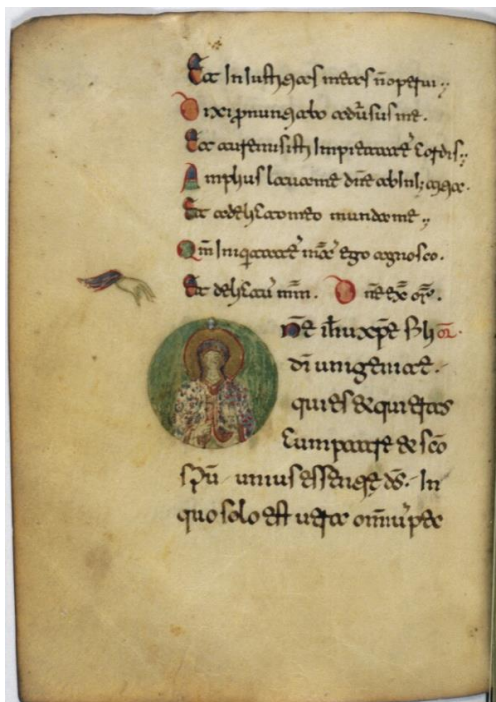 Et Iniustitias meas n̄ operui
Dixi pnuntiabo adūsus me.
Et tu remisisti Impietatē Cordis
Amplius laua me dn̄e ab mea.
Et a delicto meo munda me
Qm̄ Iniquitatē meā ego agnosco.
Et delictū mm̄. Dn̄e ex̄ or̄.
Dn̄e ih̄u xp̄e fili or̄
dī unigenite.
qui es & qui eras
Cum patre & sc̄o
sp̄u unius essentie ds̄. In
quo solo est uera